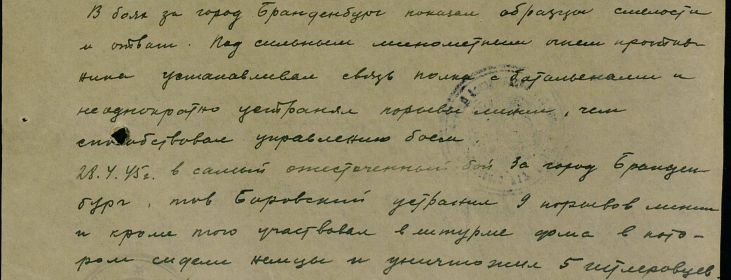 В боях за город Бранденбург показал образцы смелости
и отваги. Под сильным минометным огнем против-
ника устанавливал связь полка с батальонами и
неоднократно устранял порывы линии, чем
способствовал управлению боем.
28.4.45г. в самый ожесточенный бой за город Бранден-
бург, тов Боровский устранил 9 порывов линии
и кроме того участвовал в штурме дома в кото-
ром сидели немцы и уничтожил 5 гитлеровцев.